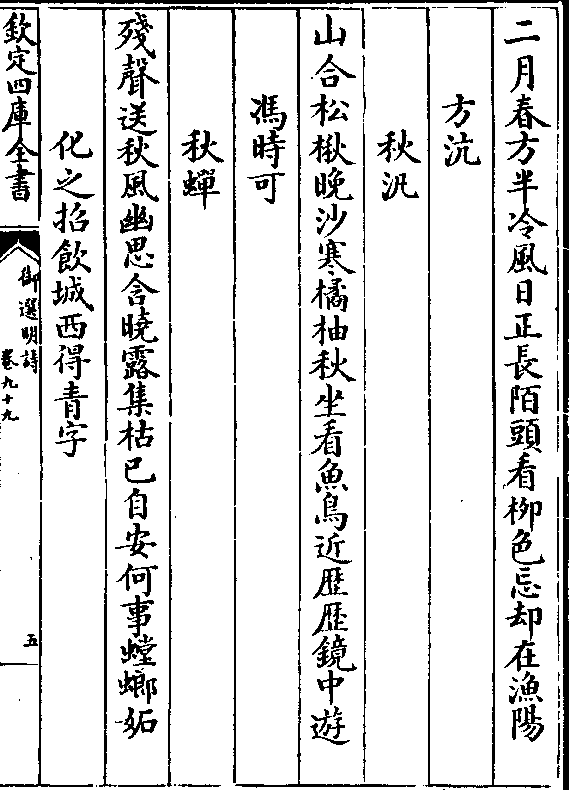 二月春方半冷風日正長陌頭看柳色忘却在漁陽
方沆
秋汎
山合松楸晚沙寒橘柚秋坐看魚鳥近歴歴鏡中遊
馮時可
秋蟬
殘聲送秋風幽思含曉露集枯已自安何事螳螂妬
化之招飲城西得青字
欽定四庫全書
御選明詩
卷九十九
五